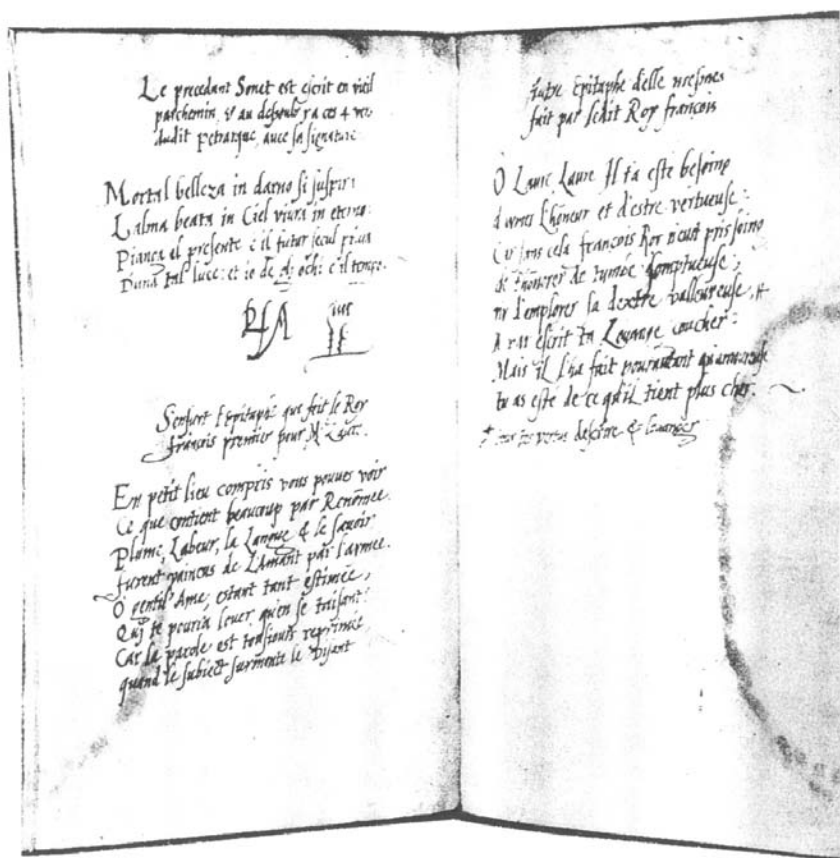 Le precedant Sonet est escrit en vieil
parchemin, et au dessoubz y a ces 4 vers
dudit Petrarque, avec sa signature.
Mortal belleza in darno si suspira
L'alma beata in Ciel vivra in eterno:
Pianga el presente e il futur secul priva
D'una tal luce: et io de gli ochi e il tempo.
S'ensuit l'Epitaphe que feit le Roy
François premier pour M. Laure.
En petit lieu compris vous pouves voir
Ce que contient beaucoup par Renomee.
Plume, Labeur, la Langue & le scavoir
furent vaincus de L'Amant par l'aymee.
O gentil' Ame, estant tant estimee,
Qui te poura louer, qu'en se taisant?
Car la parole est tousiours reprimee
quand le subiect surmonte le Disant
Autre Epitaphe d'elle mesmes
fait par ledit Roy françois
O Laure Laure Il t'a este besoing
d'aymer L'honeur et d'estre vertueuse:
Car sans cela françois Roy n'eust pris soing
de t'honorer de tumbe somptueuse,
ny d'employer sa dextre valleureuse,
A par escrit ta Louange coucher:
Mais il L'ha fait pourautant qu'amoureuse
tu as este de ce qu'il tient plus cher.
tes vertus & louanges